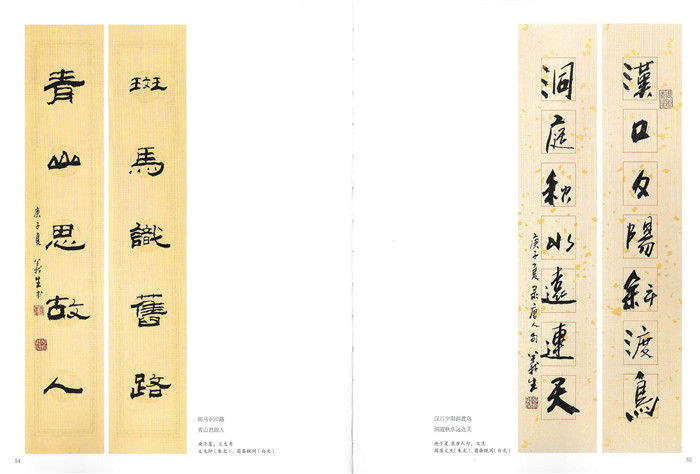 斑馬識舊路
青山思故人
庚子夏 義生書
斑马识旧路
青山思故人
庚子夏，义生书
义生印（朱文）、（白文）
54
漢口夕陽斜渡鳥
洞庭秋水遠連天
庚子夏录唐人句 義生
汉口夕阳斜渡鸟
洞庭秋水远连天
庚子夏，录唐人句，义生
（朱文）、（白文）
55